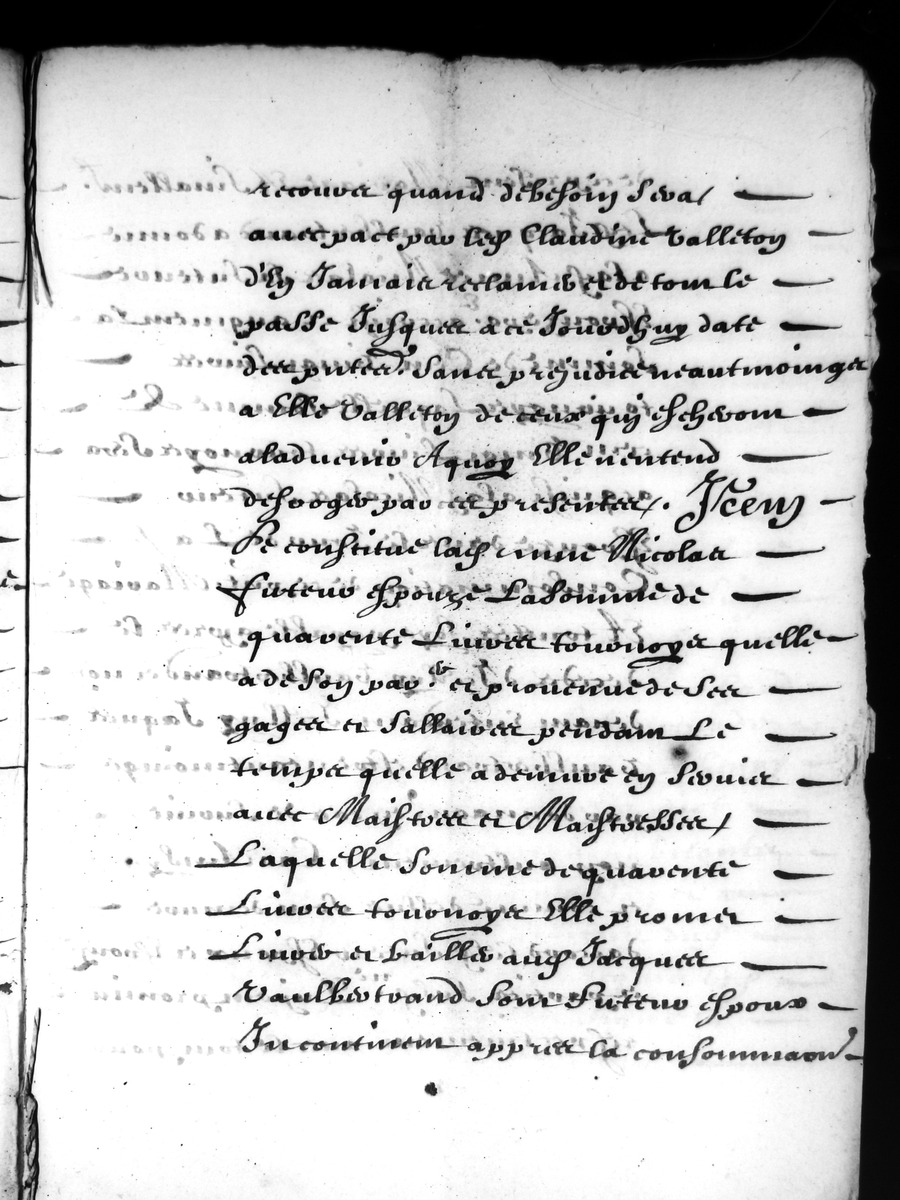 recouvrer quand debesoin sera /
avec pact par lad Claudine Valleton
d'en Jamais reclamer et de tout le
passe Jusques a ce Jourdhuy date
des pntes. Sans prejudice neautmoinges
a Elle Valleton de ceux qui escherront
aladvenir Aquoy Elle nentend
desroger par ces presentes /. Item
Se constitue lad Nicolas
future espouze La somme de
quarente Livres tournoyes quelle
a de son par et provenue de Ses
gages et Sallaires pendant Le
temps quelle a demure en Service
avec Maistres et Maistresses /
Laquelle Somme de quarente
Livres tournoyes Elle promet
Livrer et bailler aud Jacques
Vaulbertrand Son futeur espoux
Incontinent appres la consommaon